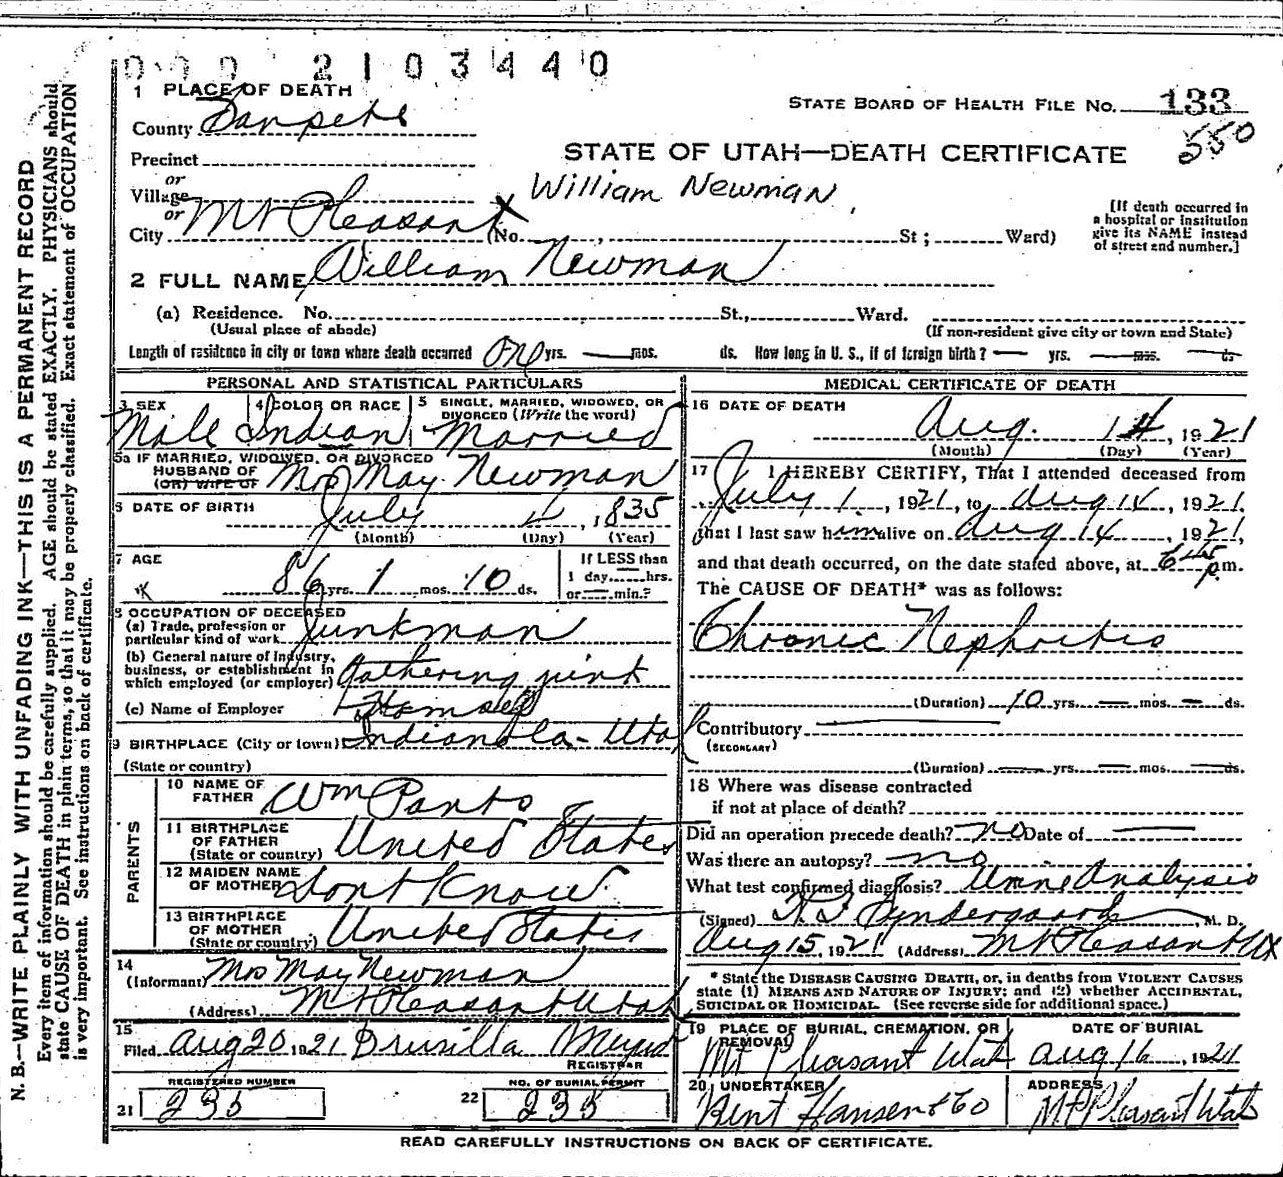 000 2103440
1 PLACE OF DEATH
STATE BOARD OF HEALTH FILE NO. 133
County Sanpete
550
STATE OF UTAH—DEATH CERTIFICATE
Precinct
or
Village
William Newman
or
City Mt Pleasant (No. , St ; Ward)
[If death occurred in
a hospital or institution
give its NAME instead
of street end number.]
2 FULL NAME William Newman
(a) Residence. No. St., Ward.
(Usual place of abode)
(If non-resident give city or town and State)
Length of residence in city or town where death occurred One yrs. — mos. ds. How long in U. S., if of foreign birth? — yrs. — mos. — ds
PERSONAL AND STATISTICAL PARTICULARS
3 SEX
Male
4 COLOR OR RACE
Indian
5 SINGLE, MARRIED, WIDOWED, OR
DIVORCED (Write the word)
Married
5a IF MARRIED, WIDOWED, OR DIVORCED
HUSBAND OF
(OR) WIFE OF Mrs May Newman
6 DATE OF BIRTH July 4, 1835
(Month) (Day) (Year)
7 AGE
86 yrs. 1 mos. 10 ds.
If LESS than
1 day hrs.
or — min.?
8 OCCUPATION OF DECEASED
(a) Trade, profession or
particular kind of work Junkman
(b) General nature of industry,
business, or establishment in
which employed (or employer) Gathering junk
(c) Name of Employer Himself
9 BIRTHPLACE (City or town) Indianola - Utah
(State or country)
PARENTS
10 NAME OF
FATHER Wm Panto
11 BIRTHPLACE
OF FATHER
(State or country) United States
12 MAIDEN NAME
OF MOTHER Dont Know
13 BIRTHPLACE
OF MOTHER
(State or country) United States
14
(Informant) Mrs May Newman
(Address) Mt Pleasant Utah
15
Filed Aug 20 1921 Drusilla
REGISTRAR
REGISTERED NUMBER
21 235
NO. OF BURIAL PERMIT
22 235
MEDICAL CERTIFICATE OF DEATH
16 DATE OF DEATH
Aug. 14, 1921
(Month) (Day) (Year)
17 I HEREBY CERTIFY, That I attended deceased from
July 1, 1921, to Aug 14, 1921,
that I last saw him alive on Aug 14, 1921,
and that death occurred, on the date stated above, at 645 p.m.
The CAUSE OF DEATH* was as follows:
Chronic Nephritis
(Duration) 10 yrs. — mos. — ds.
Contributory
(SECONDARY)
(Duration) — yrs. — mos. — ds.
18 Where was disease contracted
if not at place of death?
Did an operation precede death? no Date of —
Was there an autopsy? no
What test confirmed diagnosis? Urine Analysis
(Signed) M. D.
Aug 15, 1921 (Address) Mt Pleasant
* State the DISEASE CAUSING DEATH, or, in deaths from VIOLENT CAUSES
state (1) MEANS AND NATURE OF INJURY; and (2) whether ACCIDENTAL,
SUICIDAL OR HOMICIDAL. (See reverse side for additional space.)
19 PLACE OF BURIAL, CREMATION, OR
REMOVAL
Mt Pleasant Utah
DATE OF BURIAL
Aug 16, 1921
20 UNDERTAKER
Hansen & Co
ADDRESS
Mt Pleasant Utah
READ CAREFULLY INSTRUCTIONS ON BACK OF CERTIFICATE.
N. B.—WRITE PLAINLY WITH UNFADING INK—THIS IS A PERMANENT RECORD
Every item of information should be carefully supplied. AGE should be stated EXACTLY. PHYSICIANS should
state CAUSE OF DEATH in plain terms, so that it may be properly classified. Exact statement of OCCUPATION
is very important. See instructions on back of certificate.